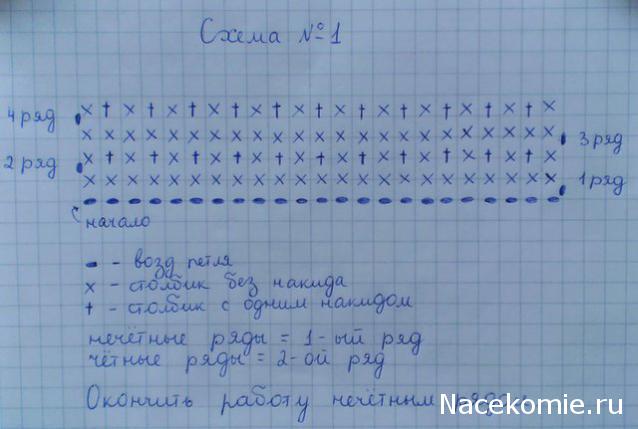 Схема №1
4 ряд
3 ряд
2 ряд
1 ряд
начало
- возд петля
х - столбик без накида
† - столбик с одним накидом
нечётные ряды = 1-ый ряд
чётные ряды = 2-ой ряд
Окончить работу нечётным рядом
Nacekomie.ru